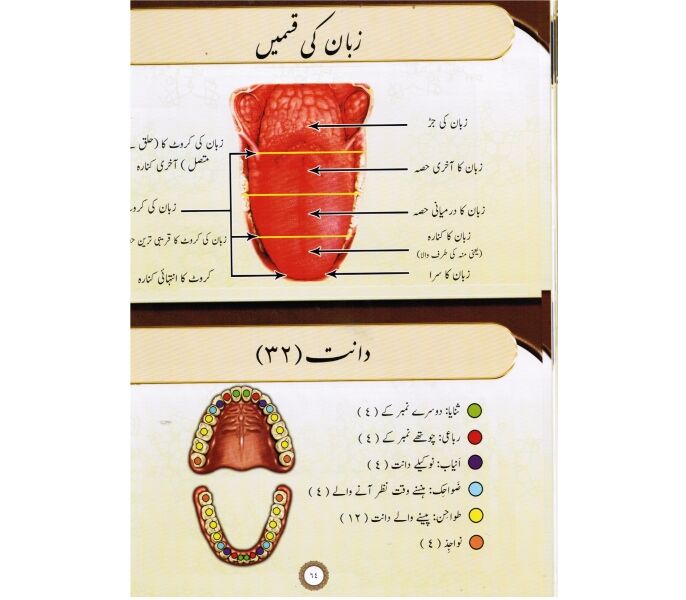 زبان کی قسمیں
زبان کی جڑ
زبان کا آخری حصہ
زبان کا درمیانی حصہ
زبان کا کنارہ
(یعنی منہ کی طرف والا)
زبان کا سرا
زبان کی کروٹ کا (حلق
متصل) آخری کنارہ
زبان کی
زبان کی کروٹ کا قریبی ترین
کروٹ کا انتہائی کنارہ
دانت (۳۲)
ثنایا: دوسرے نمبر کے (۴)
رباعی: چوتھے نمبر کے (۴)
اَنیاب: نوکیلے دانت (۴)
ضَواحِک: ہنستے وقت نظر آنے والے (۴)
طواحن: پیسنے والے دانت (۱۲)
نواجِذ (۴)
٦٤